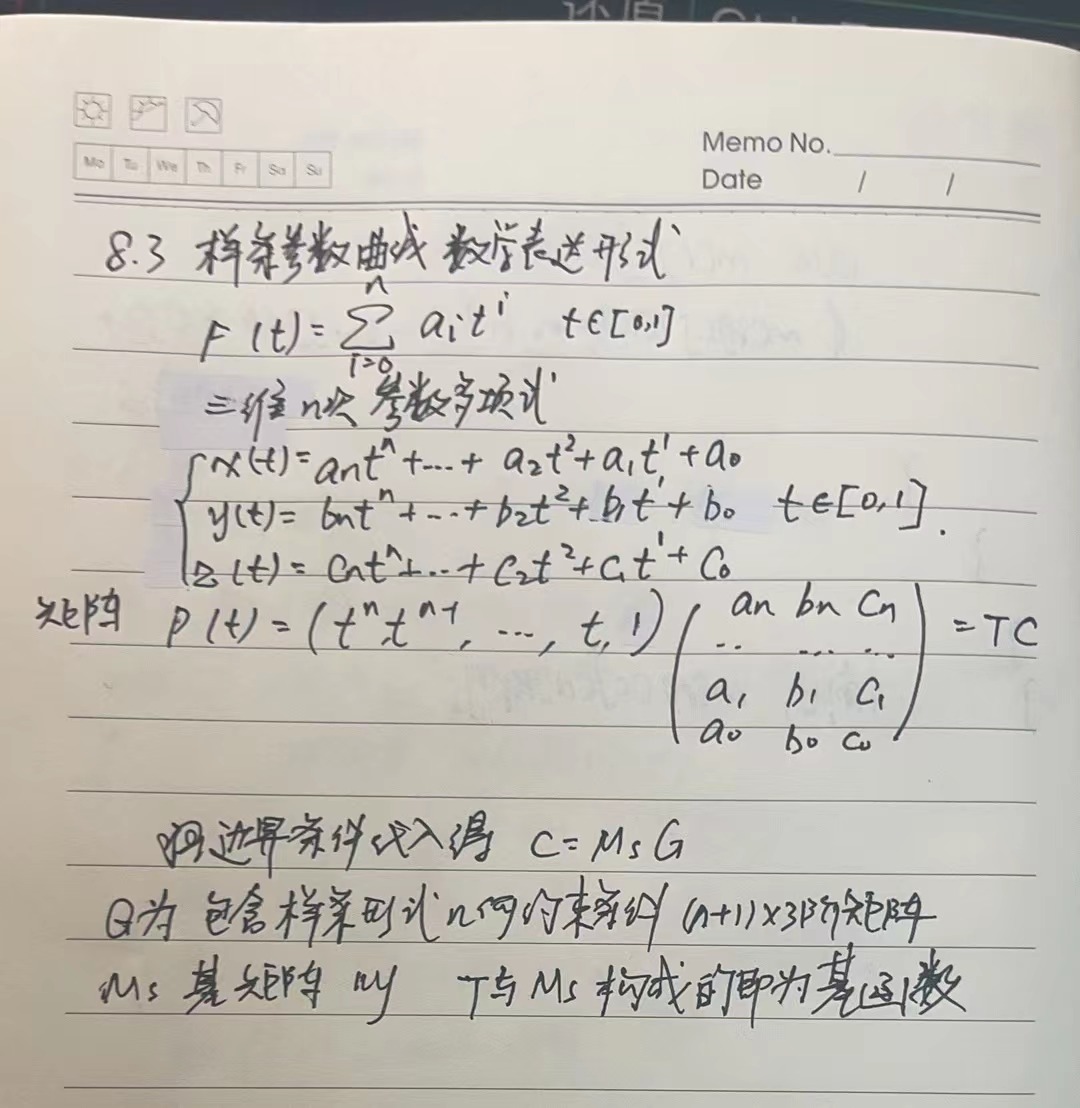 还原
Mo Tu We Th Fr Sa Su
Memo No.
Date / /
8.3 样条参数曲线 数学表达形式
F(t)=∑_{i=0}^{n} aᵢtⁱ t∈[0,1]
三维n次 参数多项式
x(t)=aₙtⁿ+...+ a₂t²+a₁t¹+a₀
y(t)= bₙtⁿ+...+b₂t²+b₁t¹+b₀ t∈[0,1].
z(t)= cₙtⁿ+...+c₂t²+c₁t¹+c₀
矩阵 P(t)=(tⁿ,tⁿ⁻¹, ..., t,1) (aₙ bₙ cₙ
.. ... ...
a₁ b₁ c₁
a₀ b₀ c₀) =TC
边界条件代入得 C=MsG
G为 包含样条形式几何约束条件 (n+1)×3阶矩阵
Ms 基矩阵 则 T与Ms构成的即为基函数